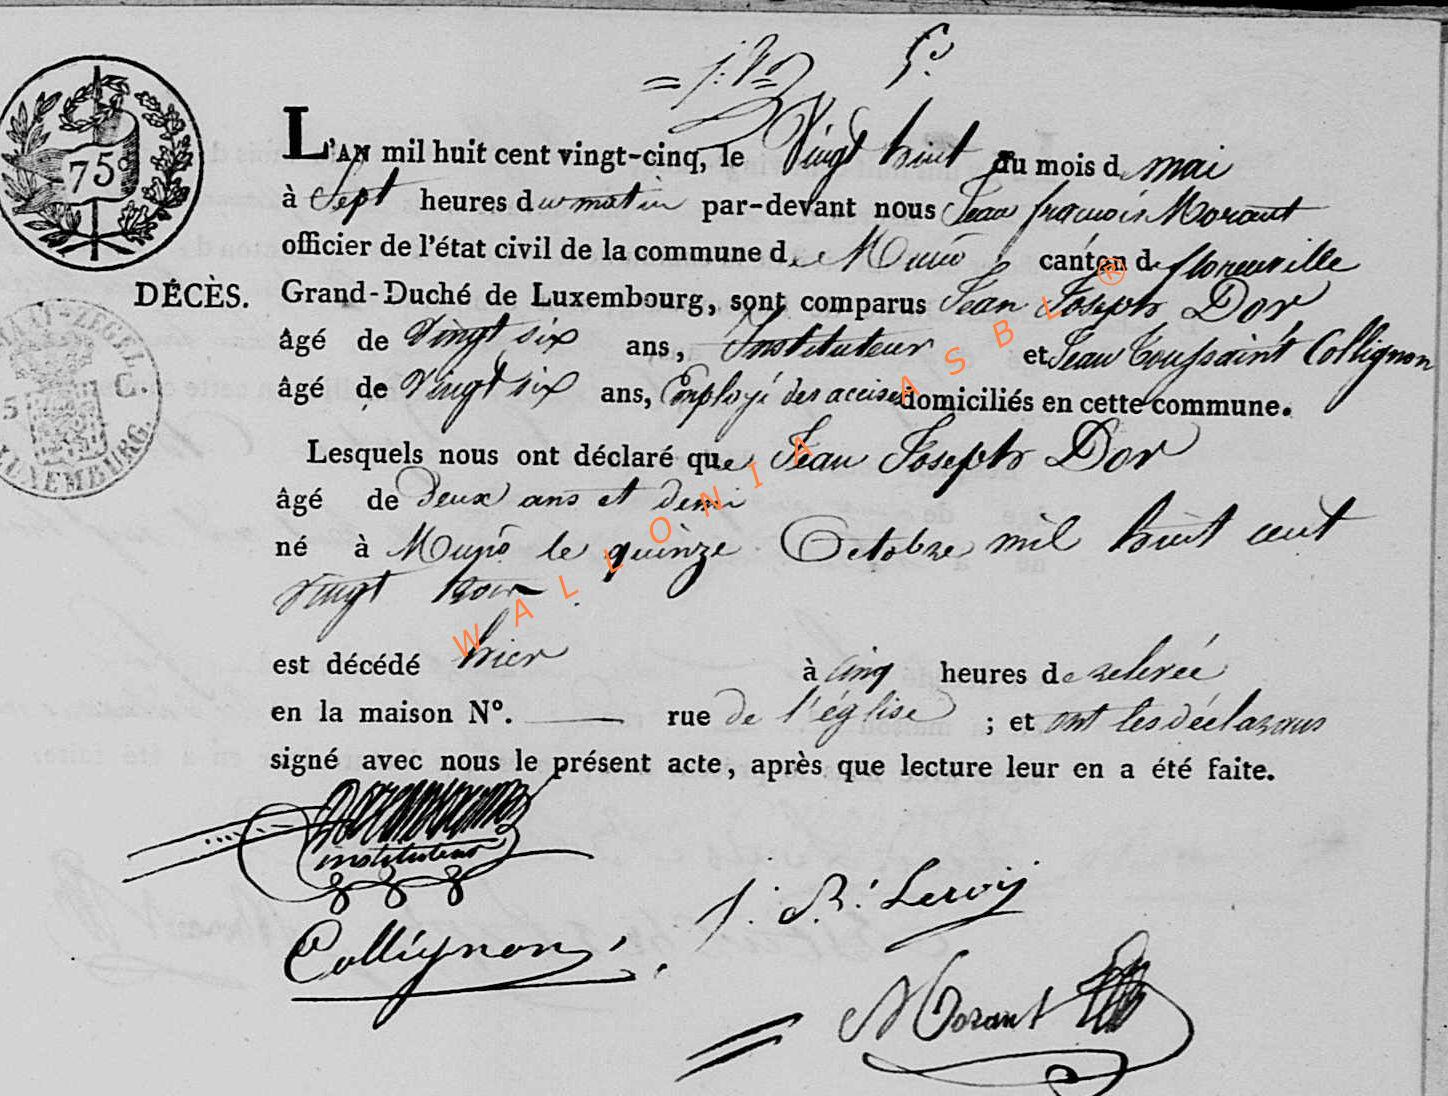 5e.
75c
L'AN mil huit cent vingt-cinq, le Vingt huit du mois de mai
à Sept heures du matin par-devant nous Jean françois Morant
officier de l'état civil de la commune de Muno canton de florenville
DÉCÈS. Grand-Duché de Luxembourg, sont comparus Jean Joseph Dor
âgé de Vingt six ans, Instituteur et Jean Toussaint Collignon
âgé de Vingt six ans, Employé des accises domiciliés en cette commune.
Lesquels nous ont déclaré que Jean Joseph Dor
âgé de deux ans et demi
né à Muno le quinze Octobre mil huit cent
vingt
est décédé hier à cinq heures de relevée
en la maison N°. — rue de l'église ; et ont les déclarans
signé avec nous le présent acte, après que lecture leur en a été faite.
instituteur
Collignon
Morant
STAAT-ZEGEL
C.
LUXEMBURG.
WALLONIA ASBL ®